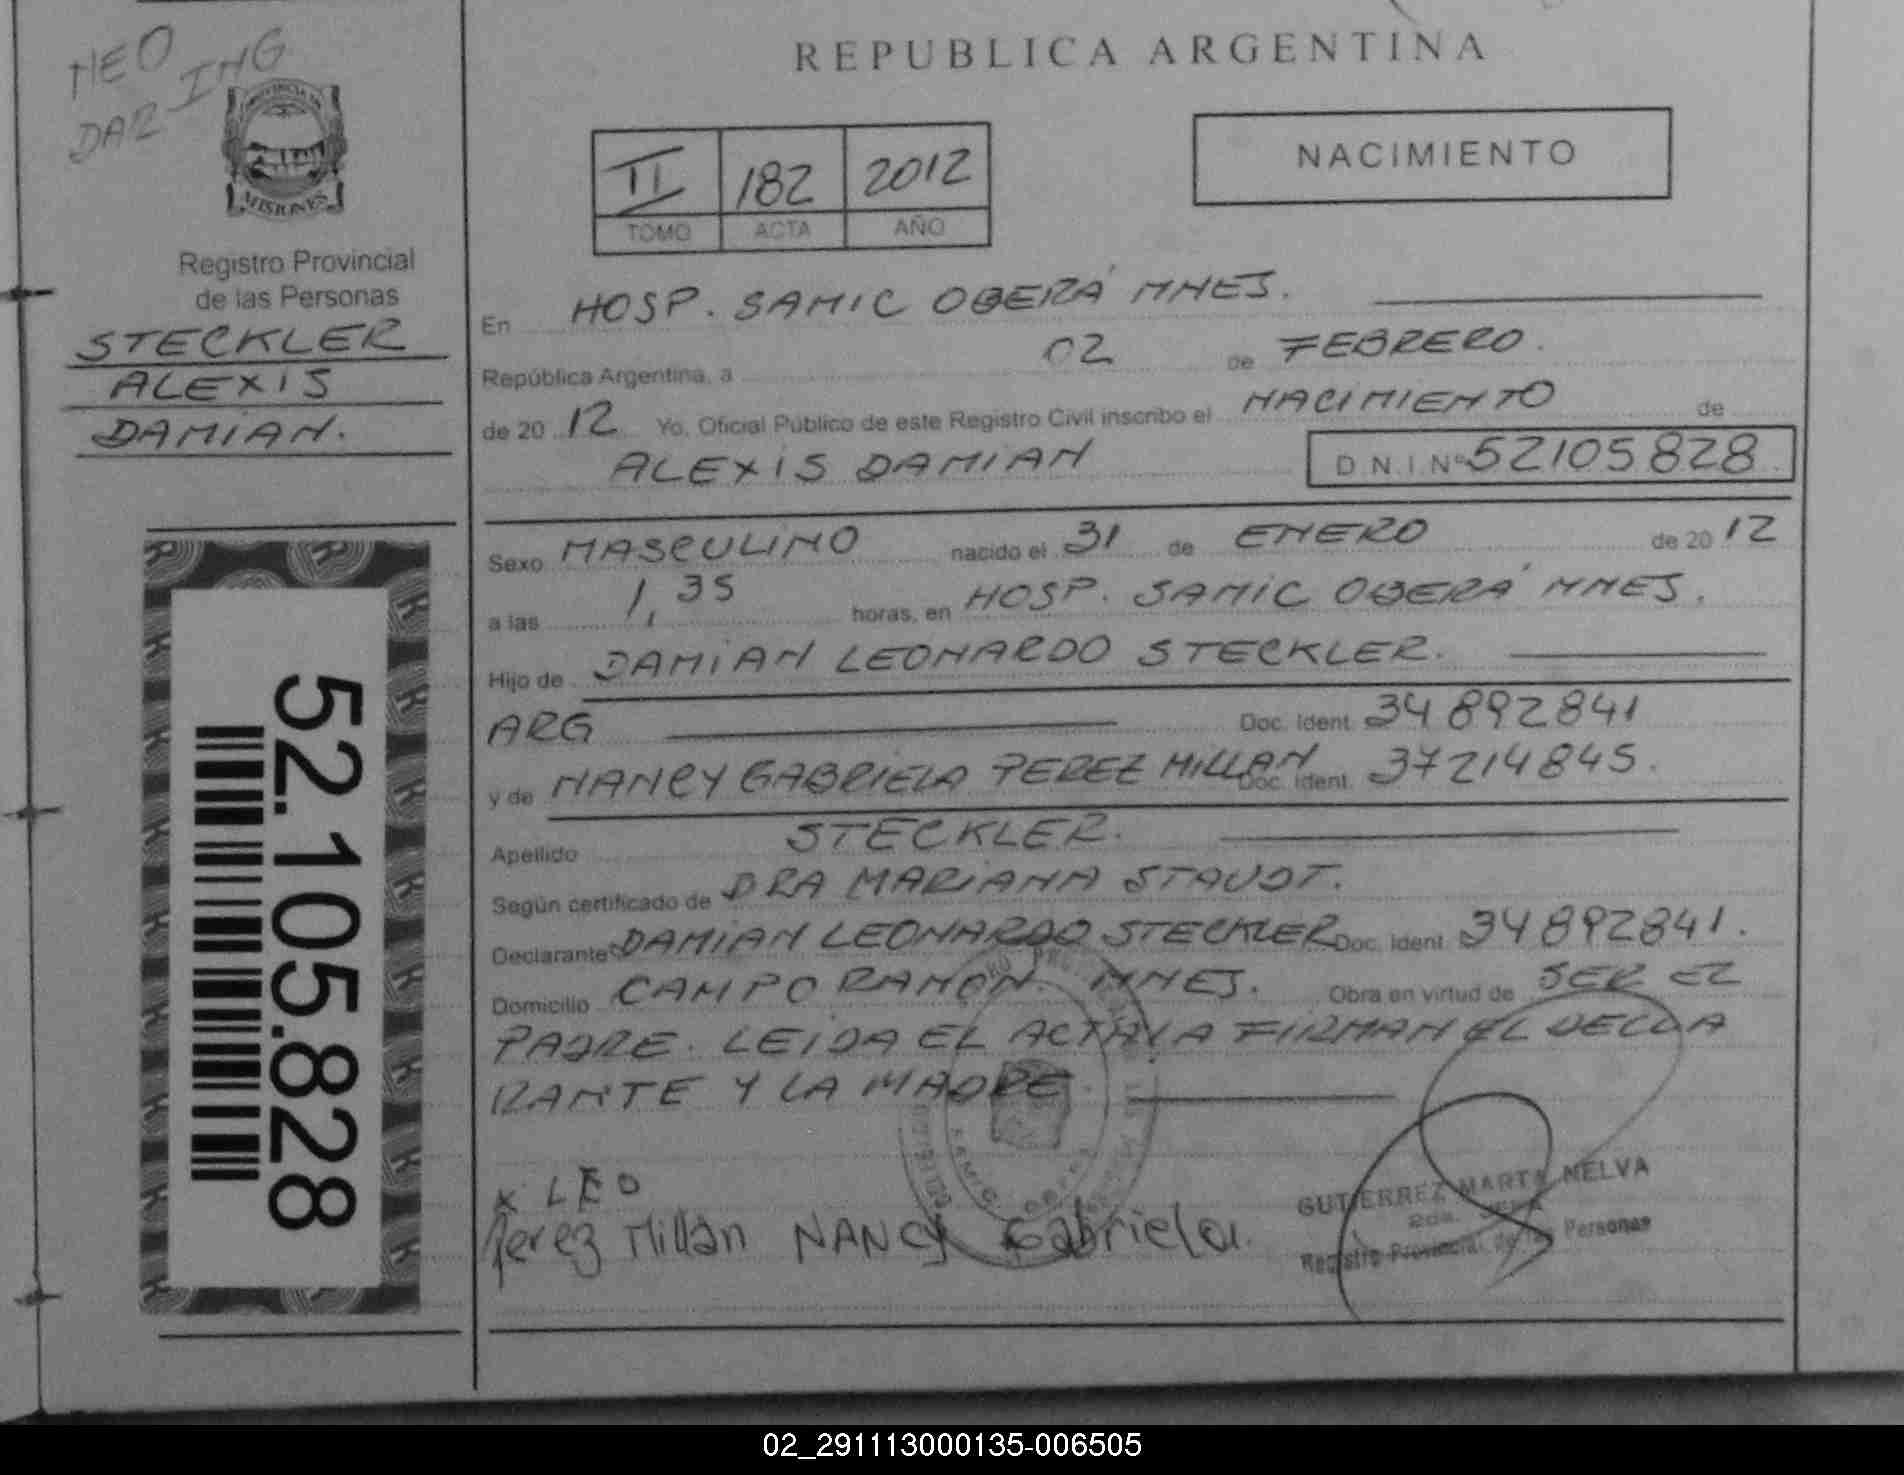 NEO
DAR ING
PROVINCIA DE
MISIONES
Registro Provincial
de las Personas
STECKLER
ALEXIS
DAMIAN.
52.105.828
REPUBLICA ARGENTINA
II 182 2012
TOMO ACTA AÑO
NACIMIENTO
En HOSP. SAMIC OBERÁ MNES.
República Argentina, a 02 de FEBRERO.
de 20 12 Yo, Oficial Público de este Registro Civil inscribo el NACIMIENTO de
ALEXIS DAMIAN D.N.I.Nº 52105828.
Sexo MASCULINO nacido el 31 de ENERO de 20 12
a las 1,35 horas, en HOSP. SAMIC OBERÁ MNES.
Hijo de DAMIAN LEONARDO STECKLER.
ARG Doc. Ident. 34892841
y de NANCY GABRIELA PEREZ MILLAN Doc. Ident. 37214845.
Apellido STECKLER.
Según certificado de DRA MARIANA STAUDT.
Declarante DAMIAN LEONARDO STECKLER Doc. Ident. 34892841.
Domicilio CAMPO RAMON. MNES. Obra en virtud de SER EL
PADRE. LEIDA EL ACTA LA FIRMAN EL DECLA
RANTE Y LA MADRE.
X LEO
Perez Millan NANCY Gabriela.
GUTIERREZ MARTA NELVA
Registro Provincial de las Personas
02_291113000135-006505